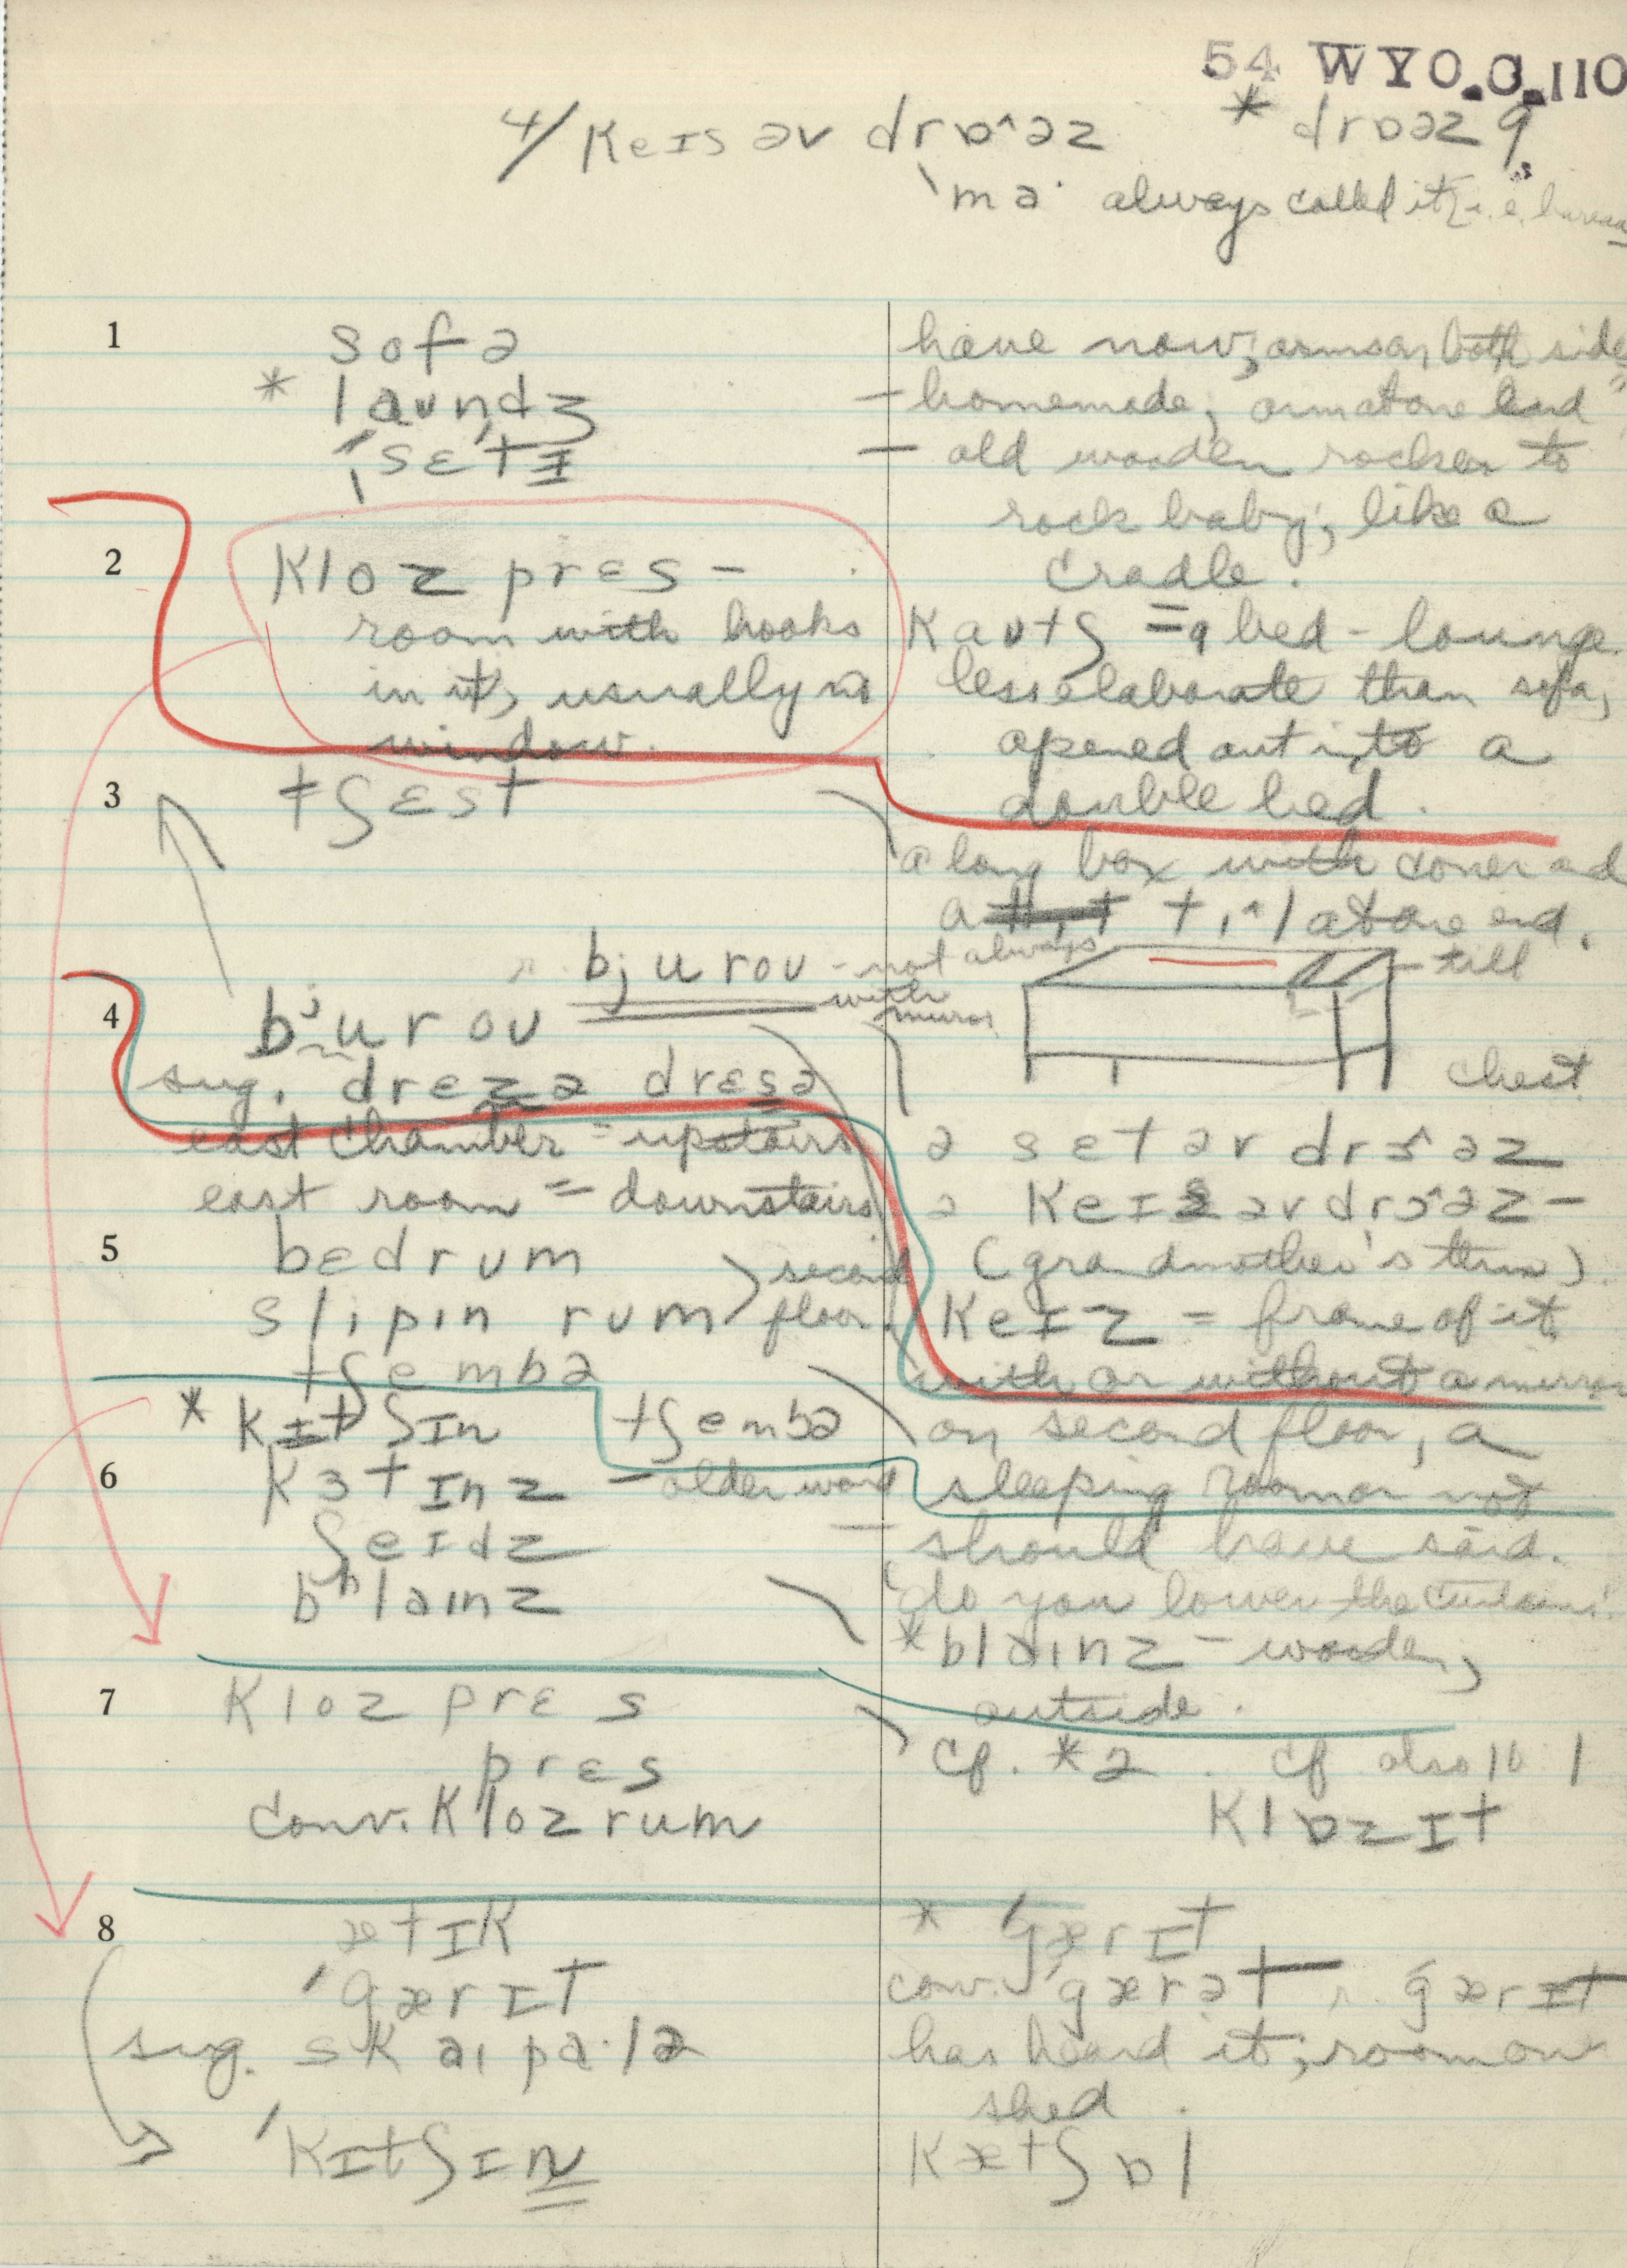 54 WYO.C.110
4/ keɪs əv drɒ^əz * drɒəz
'ma· always called it i.e. bureau
1 sofə
have now; arms on both sides
* laʊndʒ
– homemade; arm at one end
'sɛtɪ
– old wooden rocker to
rock baby; like a
cradle.
2 kloz prɛs –
room with hooks
in it, usually no
window.
kaʊtʃ = a bed-lounge
less elaborate than sofa,
opened out into a
double bed.
3 tʃɛst
a long box with cover and
a tɪ^l at one end.
till
chest
bjuroʊ - not always
with
mirror
4 bʲuroʊ
sug. drɛzə drɛsə
east chamber = upstairs
east room = downstairs
ə sɛt əv drɔ^əz
ə keɪs əv drɔ^əz –
(grandmother's term)
keɪz = frame of it
with or without a mirror
5 bɛdrum
slipin rum
second
floor
tʃembə
* kɪtʃɪn
tʃembə
on second floor, a
sleeping room or not
6 kɜtɪnz – older word
ʃeɪdz
– should have said.
'do you lower the curtains'
bʰlaɪnz
* blaɪnz – wooden,
outside.
7 kloz prɛs
prɛs
conv. kloz rum
cf. *2. cf also 10:1
klɒzɪt
8 ætɪk
'gærɪt
sug. skaɪpa·lə
'kɪtʃɪn
* 'gærɪt
conv. 'gærət r. gærɪt
has heard it; room over
shed.
kætʃɒl